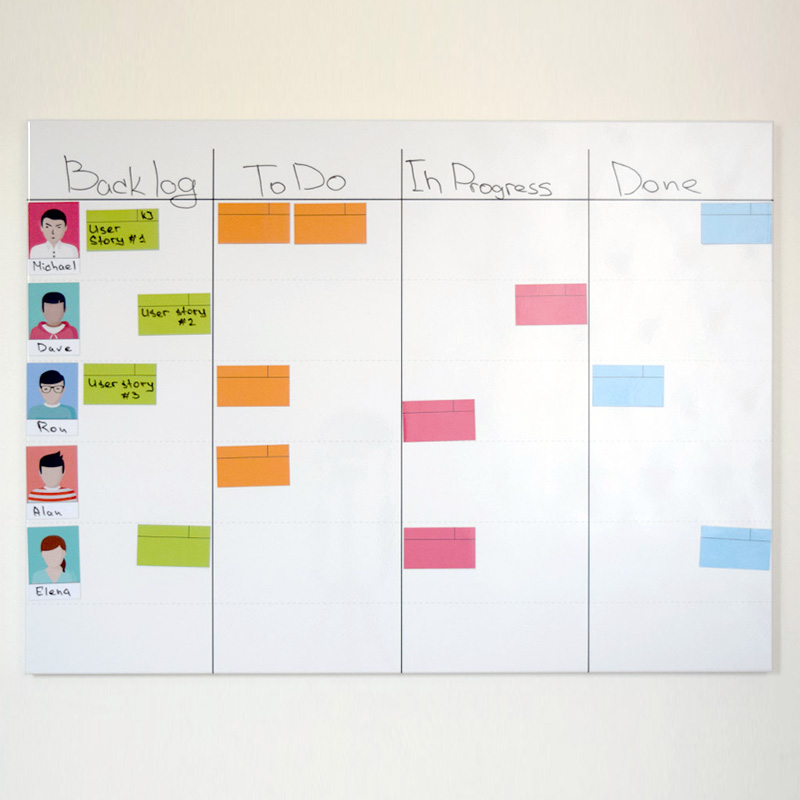 Backlog
To Do
In Progress
Done
Michael
User
Story #1
Dave
User story
#2
Ron
User story
#3
Alan
Elena